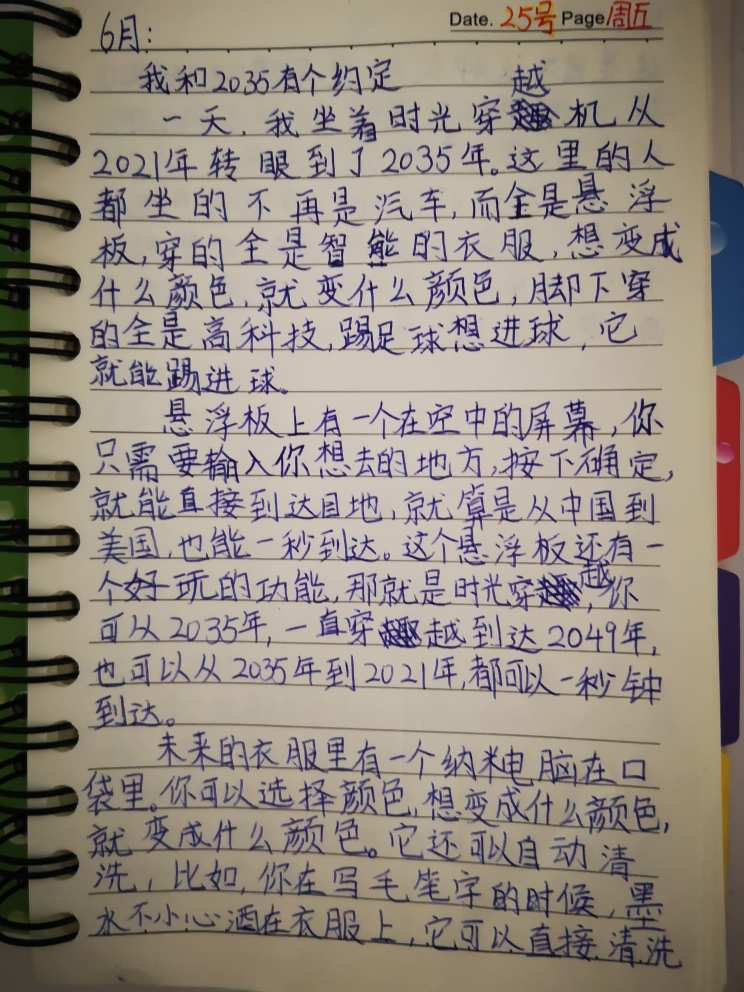 Date. 25号 Page 周五
6月:
我和2035有个约定
一天,我坐着时光穿越机从
2021年转眼到了2035年。这里的人
都坐的不再是汽车,而全是悬浮
板,穿的全是智能的衣服,想变成
什么颜色,就变什么颜色,脚下穿
的全是高科技,踢足球想进球,它
就能踢进球。
悬浮板上有一个在空中的屏幕,你
只需要输入你想去的地方,按下确定,
就能直接到达目地,就算是从中国到
美国,也能一秒到达。这个悬浮板还有一
个好玩的功能,那就是时光穿越,你
可从2035年,一直穿越到达2049年,
也可以从2035年到2021年,都可以一秒钟
到达。
未来的衣服里有一个纳米电脑在口
袋里。你可以选择颜色,想变成什么颜色,
就变成什么颜色。它还可以自动清
洗,比如,你在写毛笔字的时候,墨
水不小心洒在衣服上,它可以直接清洗